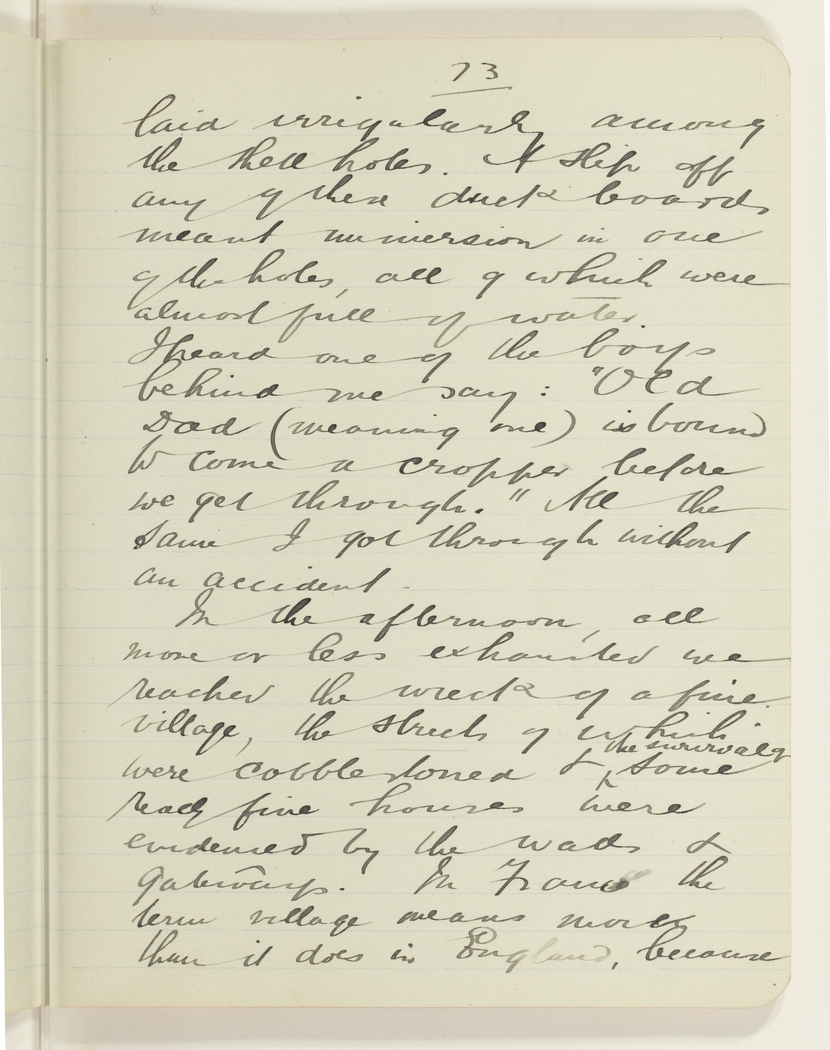 73
laid irregularly among
the shell holes. A slip off
any of these duck boards
meant immersion in one
of the holes, all of which were
almost full of water.
I heard one of the boys
behind me say: "Old
Dad (meaning me) is bound
to come a cropper before
we get through." All the
same I got through without
an accident.
In the afternoon, all
more or less exhausted we
reached the wreck of a fine
village, the streets of which
the survival of
were cobblestoned & some
really fine houses were
evidenced by the walls &
gateways. In France the
term village means more
than it does in England, because